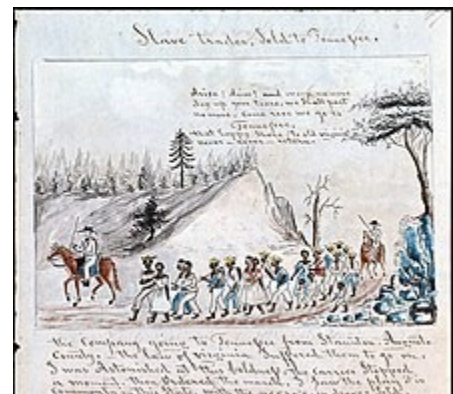 Slave trader, Sold to Tennessee.
Arise! Arise! and weep no more
dry up your tears, we shall part
no more, Come rose we go to
Tennessee,
that happy shore, to old virginia
never - never - return.
the Company going to Tennessee from Staunton, Augusta
County, the law of virginia Suffered them to go on.
I was Astonished at this boldness, the carrier Stopped
a moment, then Ordered the march, I Saw the play it is
commonly in this State, with the negro's in droves Sold.